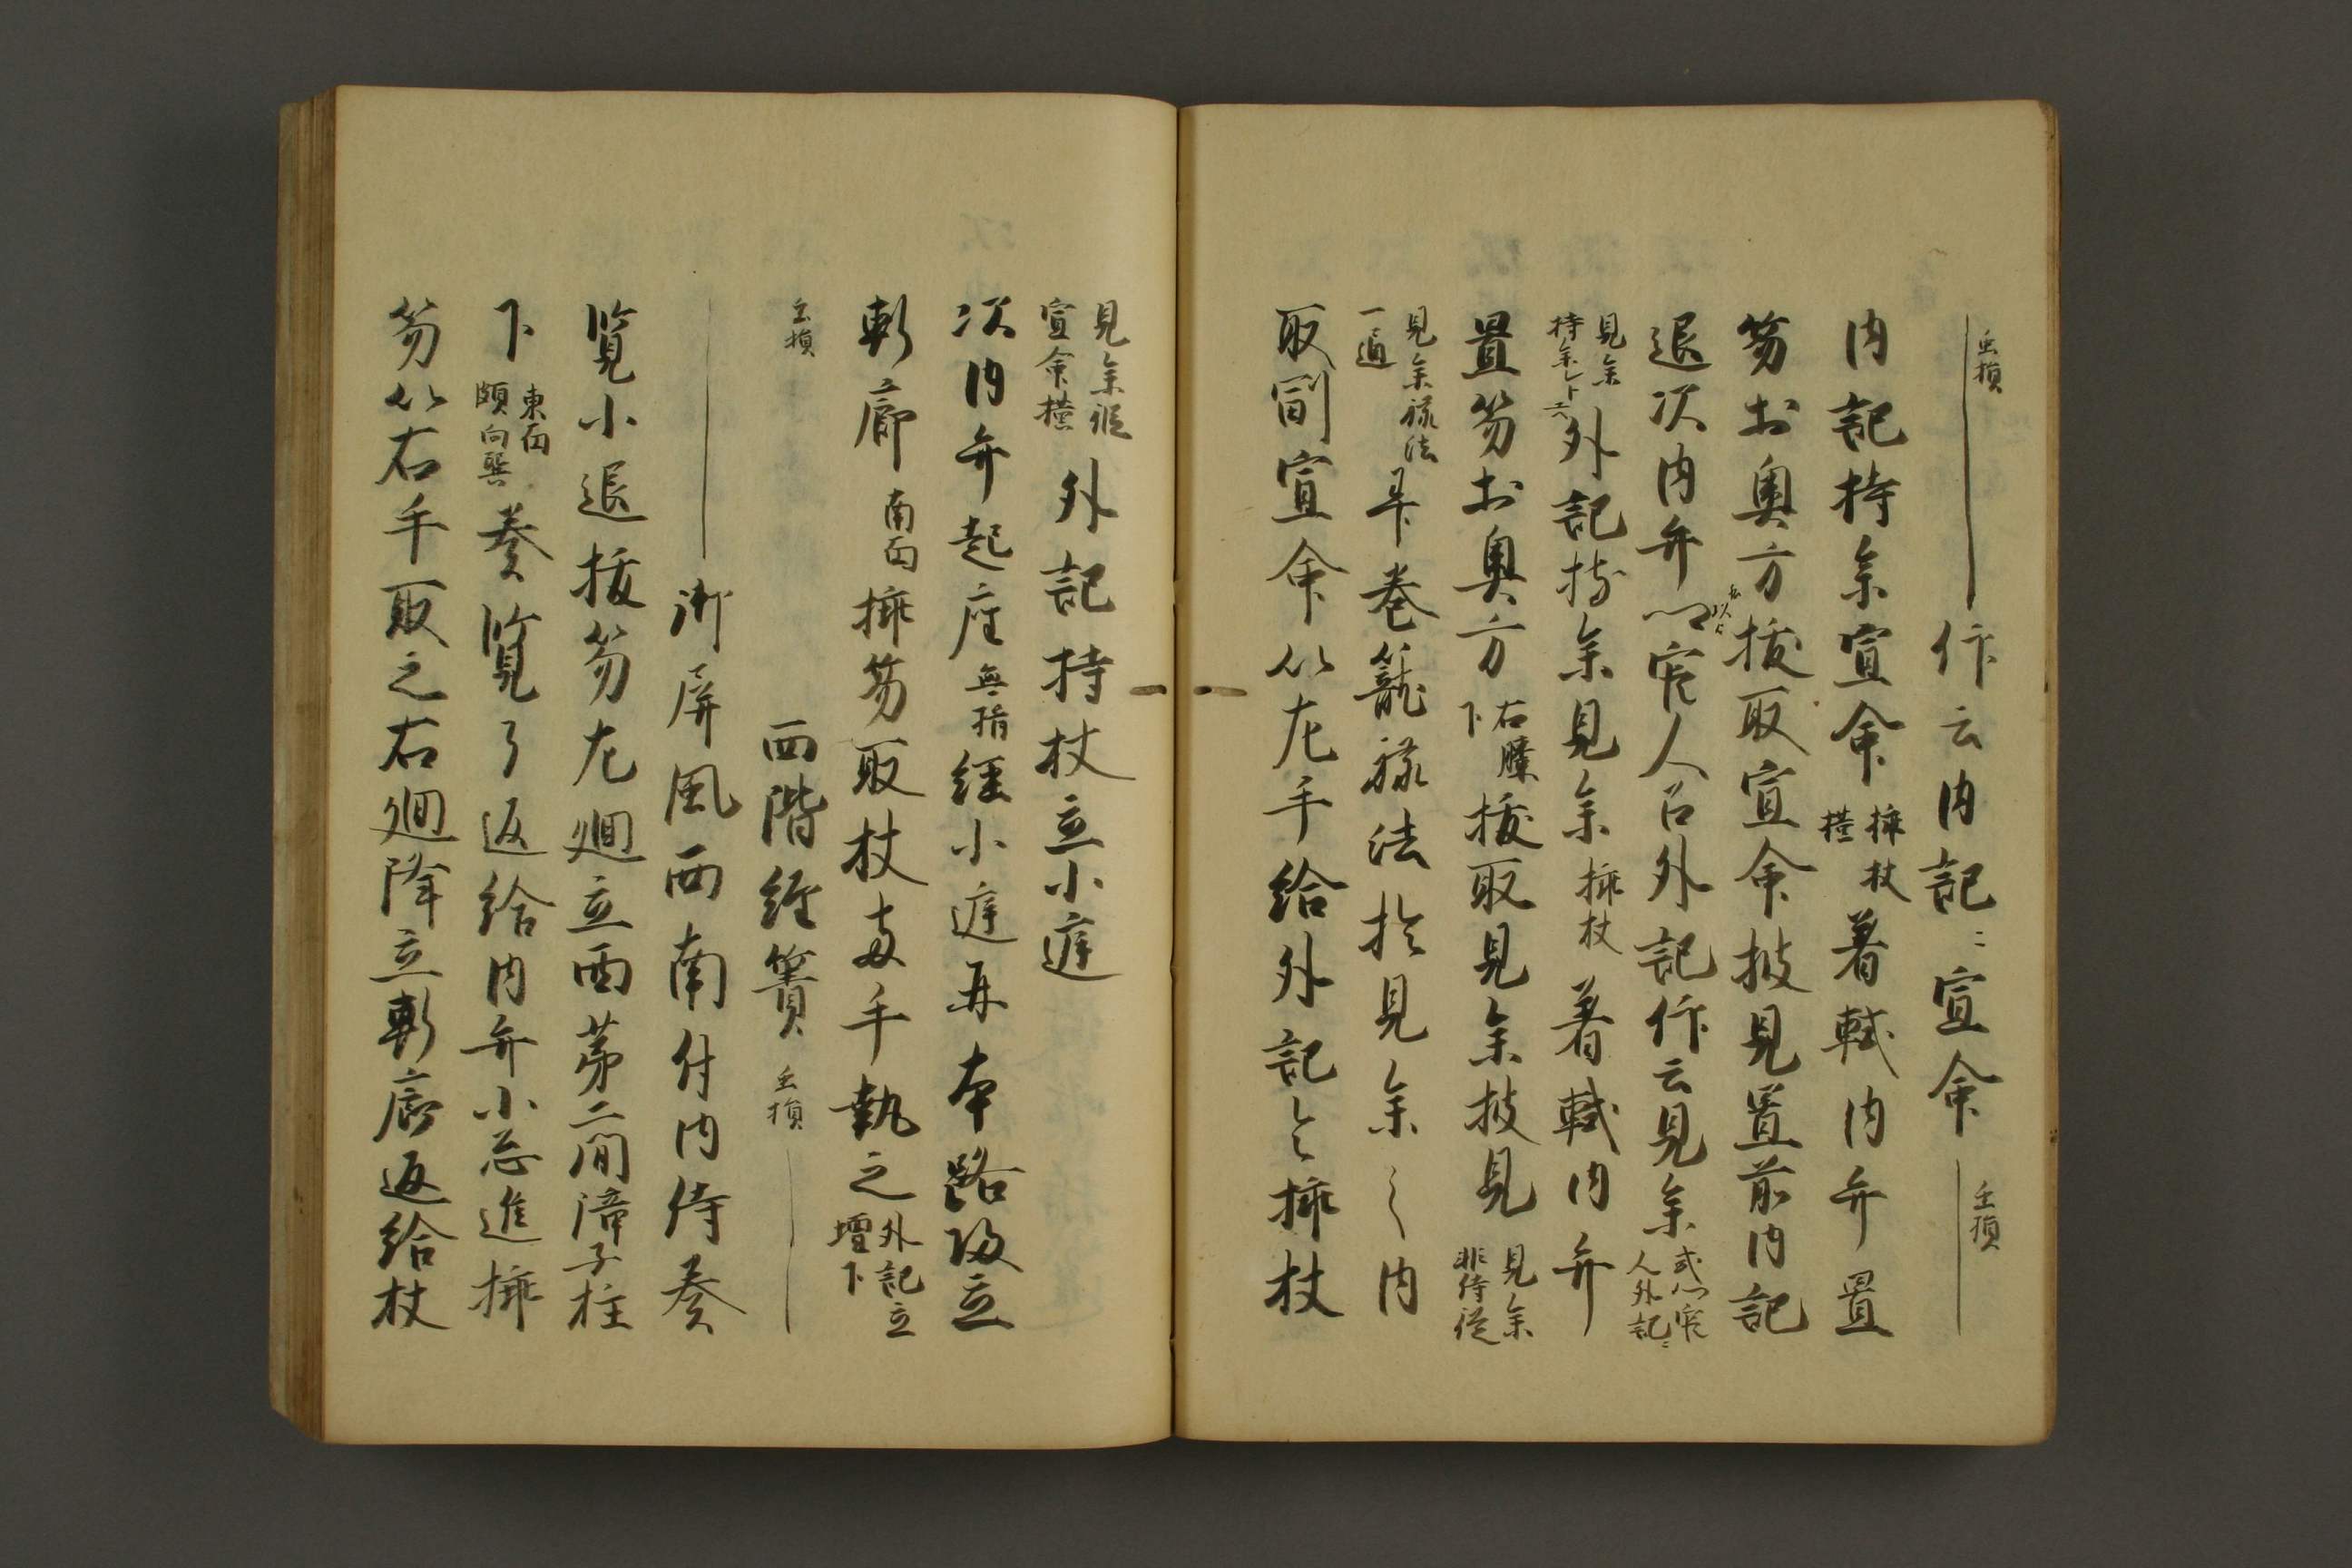 虫損 仰云内記〻宣命 虫損
内記持参宣命 挿杖横 著軾内弁置
笏於奥方抜取宣命披見置前内記
退次内弁以官人召外記仰云見参 或以官人外記〻
見参持参ト云 外記持参見参 挿杖 著軾内弁
置笏於奥方 右膝下 抜取見参披見 見参非侍従
見参禄法一通 畢巻籠禄法於見参〻内
取副宣命以左手給外記〻挿杖
見参縦宣命横 外記持杖立小庭
次内弁起座 無揖 経小庭再本路改立
軒廊 南面 挿笏取杖両手執之 外記立壇下
虫損 西階経簀 虫損
御屏風西南付内侍奏
覧小退抜笏左廻立西第二間障子柱
下 東面頗向巽 奏覧了返給内弁小忌進挿
笏以右手取之右廻降立軒廊返給杖